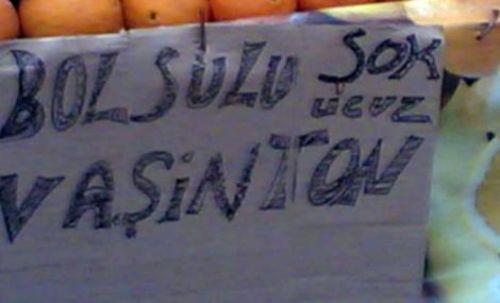 BOL SULU ŞOK
ucuz
VAŞiNTON